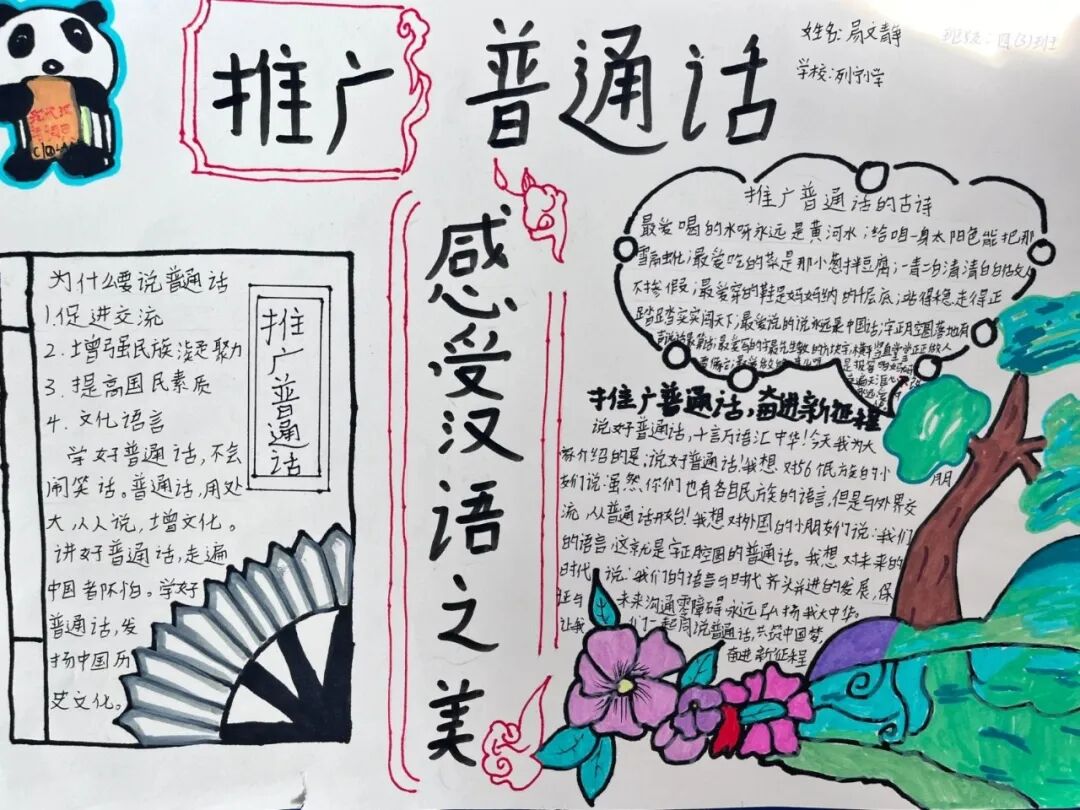 推广 普通话
姓名:易文静
班级:四(3)班
学校:列宁小学
感受汉语之美
为什么要说普通话
1.促进交流
2.增强民族凝聚力
3.提高国民素质
4.文化语言
学好普通话,不会
闹笑话。普通话,用处
大,人人说,增文化。
讲好普通话,走遍
中国者怀伯。学好
普通话,发
扬中国历
史文化。
推广普通话
推广普通话的古诗
最爱喝的水呀永远是黄河水;给咱一身太阳色能把那
雪融化;最爱吃的菜是那小葱拌豆腐;一青二白清清白白做人
不掺假;最爱穿的鞋是妈妈纳的千层底;站得稳走得正
踏踏实实闯天下;最爱说的话永远是中国话;字正腔圆落地有
推广普通话,奋进新征程
说好普通话,十言万语汇中华!今天我为大
家介绍的是:说好普通话!我想对56个民族的小朋
友们说:虽然你们也有各自民族的语言,但是与外界交
流,从普通话开始!我想对外国的小朋友们说:我们
的语言,这就是字正腔圆的普通话。我想对未来的
时代说:我们的语言与时代齐头并进的发展,保
证与未来沟通零障碍永远弘扬我大中华。
让我们一起同说普通话,共筑中国梦,
奋进新征程